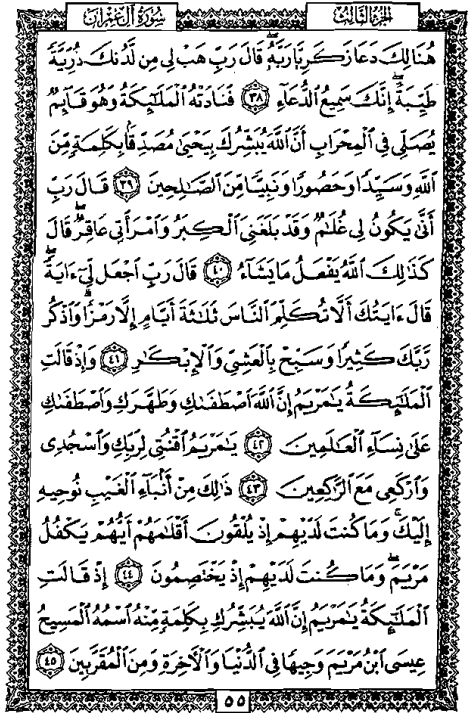 سُورَةُ آلِ عِمْرَانَ
الجُزْءُ الثَّالِثُ
هُنَالِكَ دَعَا زَكَرِيَّا رَبَّهُۥ قَالَ رَبِّ هَبْ لِى مِن لَّدُنكَ ذُرِّيَّةً
طَيِّبَةً ۖ إِنَّكَ سَمِيعُ ٱلدُّعَآءِ ٣٨ فَنَادَتْهُ ٱلْمَلَٰٓئِكَةُ وَهُوَ قَآئِمٌ
يُصَلِّى فِى ٱلْمِحْرَابِ أَنَّ ٱللَّهَ يُبَشِّرُكَ بِيَحْيَىٰ مُصَدِّقًۢا بِكَلِمَةٍ مِّنَ
ٱللَّهِ وَسَيِّدًا وَحَصُورًا وَنَبِيًّا مِّنَ ٱلصَّٰلِحِينَ ٣٩ قَالَ رَبِّ
أَنَّىٰ يَكُونُ لِى غُلَٰمٌ وَقَدْ بَلَغَنِىَ ٱلْكِبَرُ وَٱمْرَأَتِى عَاقِرٌ ۖ قَالَ
كَذَٰلِكَ ٱللَّهُ يَفْعَلُ مَا يَشَآءُ ٤٠ قَالَ رَبِّ ٱجْعَل لِّىٓ ءَايَةً ۖ
قَالَ ءَايَتُكَ أَلَّا تُكَلِّمَ ٱلنَّاسَ ثَلَٰثَةَ أَيَّامٍ إِلَّا رَمْزًا ۗ وَٱذْكُر
رَّبَّكَ كَثِيرًا وَسَبِّحْ بِٱلْعَشِىِّ وَٱلْإِبْكَٰرِ ٤١ وَإِذْ قَالَتِ
ٱلْمَلَٰٓئِكَةُ يَٰمَرْيَمُ إِنَّ ٱللَّهَ ٱصْطَفَىٰكِ وَطَهَّرَكِ وَٱصْطَفَىٰكِ
عَلَىٰ نِسَآءِ ٱلْعَٰلَمِينَ ٤٢ يَٰمَرْيَمُ ٱقْنُتِى لِرَبِّكِ وَٱسْجُدِى
وَٱرْكَعِى مَعَ ٱلرَّٰكِعِينَ ٤٣ ذَٰلِكَ مِنْ أَنۢبَآءِ ٱلْغَيْبِ نُوحِيهِ
إِلَيْكَ ۚ وَمَا كُنتَ لَدَيْهِمْ إِذْ يُلْقُونَ أَقْلَٰمَهُمْ أَيُّهُمْ يَكْفُلُ
مَرْيَمَ وَمَا كُنتَ لَدَيْهِمْ إِذْ يَخْتَصِمُونَ ٤٤ إِذْ قَالَتِ
ٱلْمَلَٰٓئِكَةُ يَٰمَرْيَمُ إِنَّ ٱللَّهَ يُبَشِّرُكِ بِكَلِمَةٍ مِّنْهُ ٱسْمُهُ ٱلْمَسِيحُ
عِيسَى ٱبْنُ مَرْيَمَ وَجِيهًا فِى ٱلدُّنْيَا وَٱلْءَاخِرَةِ وَمِنَ ٱلْمُقَرَّبِينَ ٤٥
٥٥